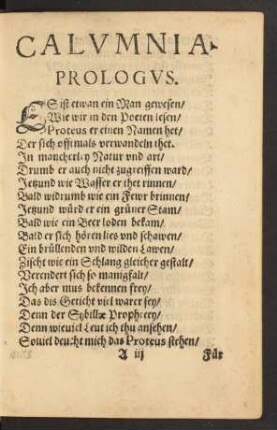 CALVMNIA.
PROLOGVS.
ES ist etwan ein Man gewesen/
Wie wir in den Poeten lesen/
Proteus er einen Namen het/
Der sich offtmals verwandeln thet.
In mancherley Natur vnd art/
Drumb er auch nicht zugreiffen ward/
Jetzund wie Wasser er thet rinnen/
Bald widrumb wie ein Fewr brinnen/
Jetzund würd er ein grüner Stam/
Bald wie ein Beer loden bekam/
Bald er sich hören lies vnd schawen/
Ein brüllenden vnd wilden Lawen/
Zischt wie ein Schlang gleicher gestalt/
Verendert sich so manigfalt/
Ich aber mus bekennen frey/
Das dis Geticht viel warer sey/
Denn der Sybillæ Prophecey/
Denn wieuiel Leut ich thu ansehen/
Souiel deucht mich das Proteus stehen/
A iij Für